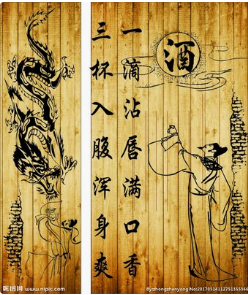 酒
一滴沾唇满口香
三杯入腹浑身爽
昵图网
www.nipic.com